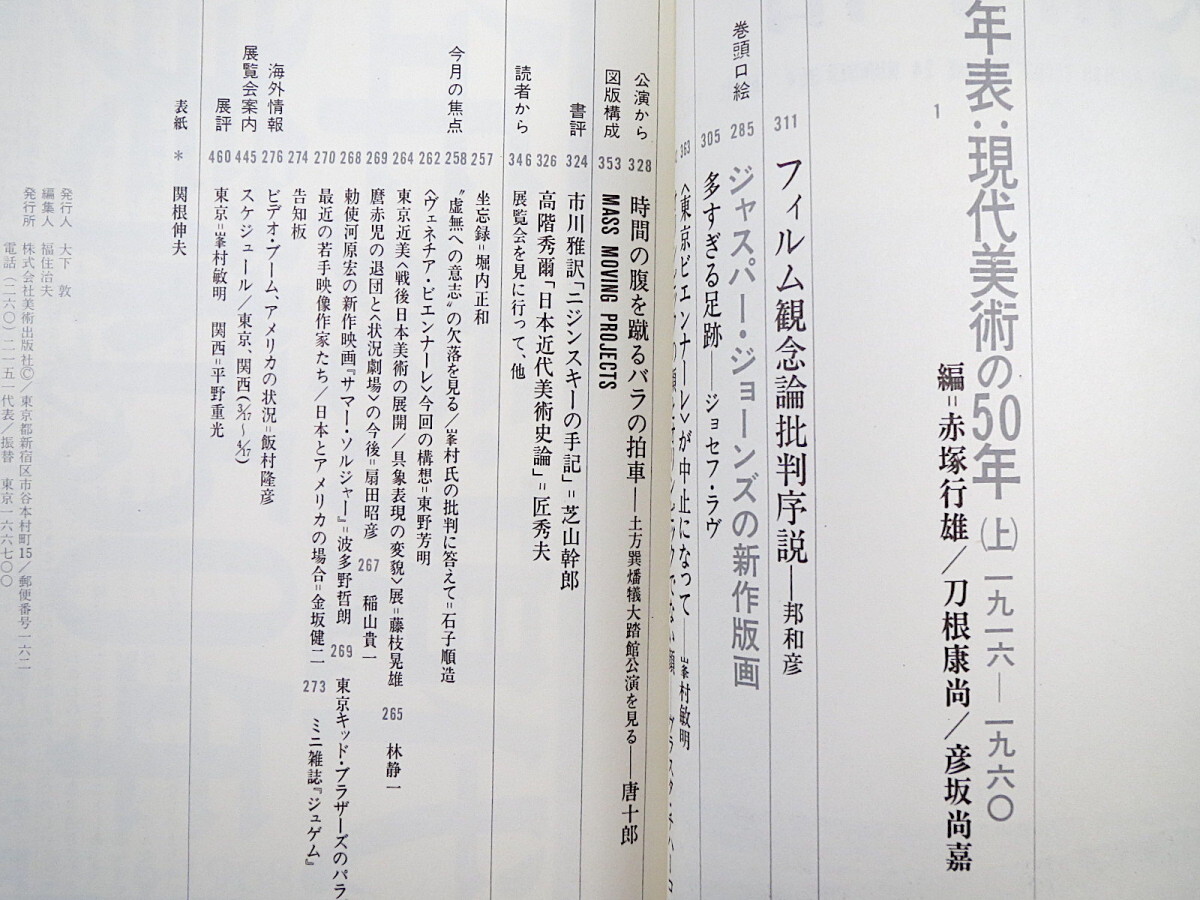 年表:現代美術の50年(上)一九一六—一九六〇
1
編=赤塚行雄/刀根康尚/彦坂尚嘉
311 フィルム観念論批判序説—邦和彦
巻頭口絵 285 ジャスパー・ジョーンズの新作版画
305 多すぎる足跡—ジョセフ・ラヴ
363 〈東京ビエンナーレ〉が中止になって—峯村敏明
公演から 328 時間の腹を蹴るバラの拍車—土方巽燔犠大踏館公演を見る—唐十郎
図版構成 353 MASS MOVING PROJECTS
書評 324 市川雅訳「ニジンスキーの手記」=芝山幹郎
326 高階秀爾「日本近代美術史論」=匠秀夫
読者から 346 展覧会を見に行って、他
257 坐忘録=堀内正和
今月の焦点 258 “虚無への意志”の欠落を見る/峯村氏の批判に答えて=石子順造
262 〈ヴェネチア・ビエンナーレ〉今回の構想=東野芳明
264 東京近美〈戦後日本美術の展開/具象表現の変貌〉展=藤枝晃雄 265 林静一
269 麿赤児の退団と〈状況劇場〉の今後=扇田昭彦 267 稲山貴一
268 勅使河原宏の新作映画『サマー・ソルジャー』=波多野哲朗 269 東京キッド・ブラザーズのパラ
270 最近の若手映像作家たち/日本とアメリカの場合=金坂健二 273 ミニ雑誌『ジュゲム』
274 告知板
海外情報 276 ビデオ・ブーム、アメリカの状況=飯村隆彦
展覧会案内 445 スケジュール/東京、関西(3/17〜4/17)
展評 460 東京=峯村敏明 関西=平野重光
表紙 * 関根伸夫
発行人 大下 敦
編集人 福住治夫
発行所 株式会社美術出版社©/東京都新宿区市谷本村町15/郵便番号一六二
電話(二六〇)二一五一代表/振替 東京一六六七〇〇